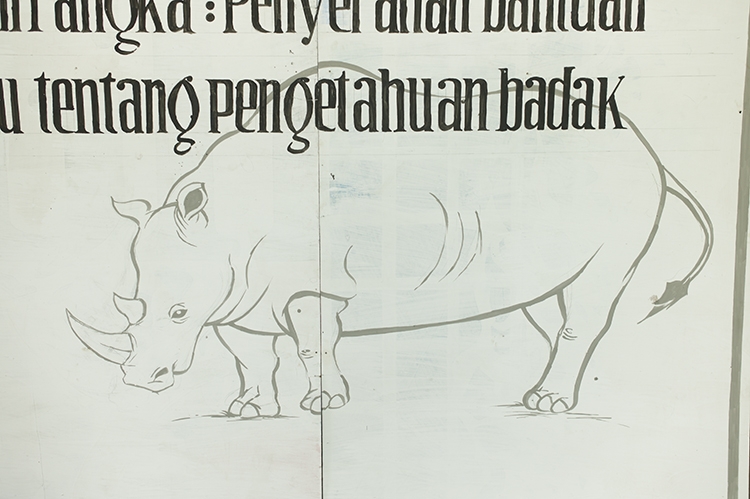 angka : Penyerahan bantuan
tentang pengetahuan badak